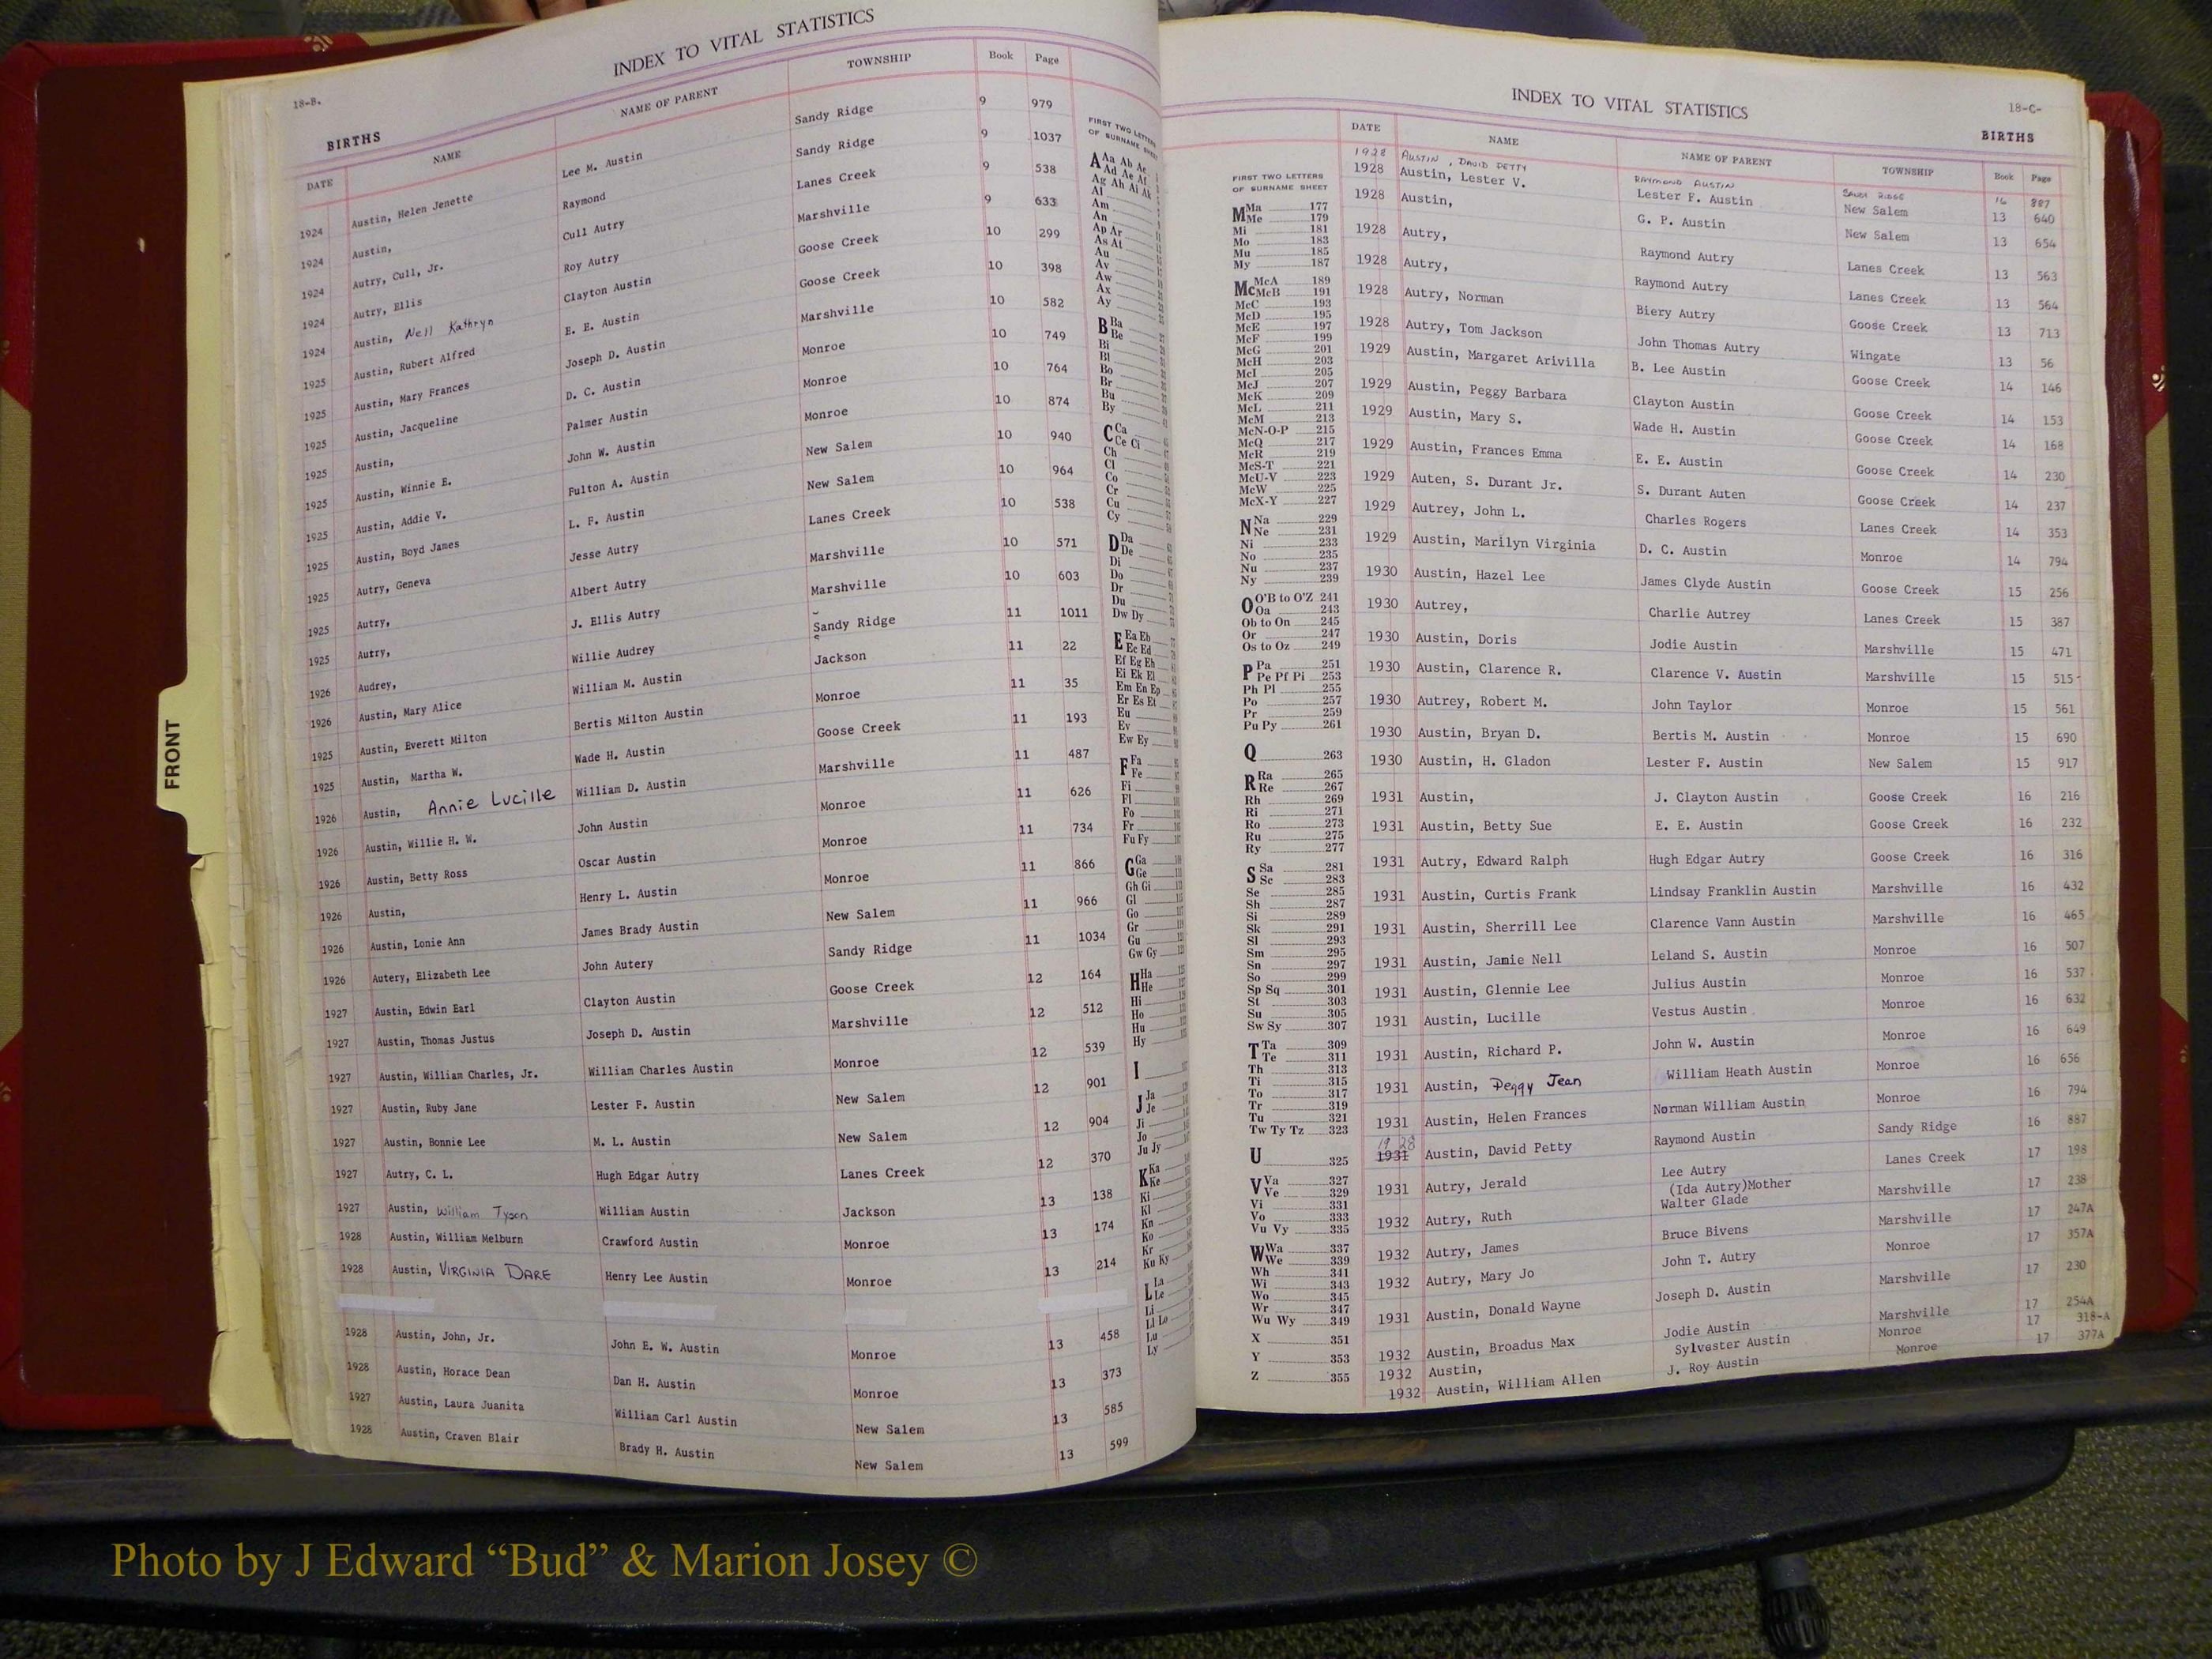 INDEX TO VITAL STATISTICS
18-B.
BIRTHS
DATE NAME NAME OF PARENT TOWNSHIP Book Page
1924 Austin, Helen Jenette Lee M. Austin Sandy Ridge 9 979
1924 Austin, Raymond Sandy Ridge 9 1037
1924 Autry, Cull, Jr. Cull Autry Lanes Creek 9 538
1924 Autry, Ellis Roy Autry Marshville 9 633
1924 Austin, Nell Kathryn Clayton Austin Goose Creek 10 299
1925 Austin, Rubert Alfred E. E. Austin Goose Creek 10 398
1925 Austin, Mary Frances Joseph D. Austin Marshville 10 582
1925 Austin, Jacqueline D. C. Austin Monroe 10 749
1925 Austin, Palmer Austin Monroe 10 764
1925 Austin, Winnie E. John W. Austin Monroe 10 874
1925 Austin, Addie V. Fulton A. Austin New Salem 10 940
1925 Austin, Boyd James L. F. Austin New Salem 10 964
1925 Autry, Geneva Jesse Autry Lanes Creek 10 538
1925 Autry, Albert Autry Marshville 10 571
1925 Autry, J. Ellis Autry Marshville 10 603
1926 Audrey, Willie Audrey Sandy Ridge 11 1011
1926 Austin, Mary Alice William M. Austin Jackson 11 22
1925 Austin, Everett Milton Bertis Milton Austin Monroe 11 35
1925 Austin, Martha W. Wade H. Austin Goose Creek 11 193
1926 Austin, Annie Lucille William D. Austin Marshville 11 487
1926 Austin, Willie H. W. John Austin Monroe 11 626
1926 Austin, Betty Ross Oscar Austin Monroe 11 734
1926 Austin, Henry L. Austin Monroe 11 866
1926 Austin, Lonie Ann James Brady Austin New Salem 11 966
1926 Autery, Elizabeth Lee John Autery Sandy Ridge 11 1034
1927 Austin, Edwin Earl Clayton Austin Goose Creek 12 164
1927 Austin, Thomas Justus Joseph D. Austin Marshville 12 512
1927 Austin, William Charles, Jr. William Charles Austin Monroe 12 539
1927 Austin, Ruby Jane Lester F. Austin New Salem 12 901
1927 Austin, Bonnie Lee M. L. Austin New Salem 12 904
1927 Autry, C. L. Hugh Edgar Autry Lanes Creek 12 370
1927 Austin, William Tyson William Austin Jackson 13 138
1928 Austin, William Melburn Crawford Austin Monroe 13 174
1928 Austin, VIRGINIA DARE Henry Lee Austin Monroe 13 214
1928 Austin, John, Jr. John E. W. Austin Monroe 13 458
1928 Austin, Horace Dean Dan H. Austin Monroe 13 373
1927 Austin, Laura Juanita William Carl Austin New Salem 13 585
1928 Austin, Craven Blair Brady H. Austin New Salem 13 599
FIRST TWO LETTERS
OF SURNAME SHEET
A Aa Ab Ac
Ad Ae Af
Ag Ah Ai Ak
Al
Am
An
Ap Ar
As At
Au
Av
Aw
Ax
Ay
B Ba
Be
Bi
Bl
Bo
Br
Bu
By
C Ca
Ce Ci
Ch
Cl
Co
Cr
Cu
Cy
D Da
De
Di
Do
Dr
Du
Dw Dy
E Ea Eb
Ec Ed
Ef Eg Eh
Ei Ek El
Em En Ep
Er Es Et
Eu
Ev
Ew Ey
F Fa
Fe
Fi
Fl
Fo
Fr
Fu Fy
G Ga
Ge
Gh Gi
Gl
Go
Gr
Gu
Gw Gy
H Ha
He
Hi
Ho
Hu
Hy
I
J Ja
Je
Ji
Jo
Ju Jy
K Ka
Ke
Ki
Kl
Kn
Ko
Kr
Ku Ky
L La
Le
Li
Ll Lo
Lu
Ly
FRONT
INDEX TO VITAL STATISTICS
18-C-
BIRTHS
FIRST TWO LETTERS
OF SURNAME SHEET
M Ma 177
Me 179
Mi 181
Mo 183
Mu 185
My 187
Mc McA 189
McB 191
McC 193
McD 195
McE 197
McF 199
McG 201
McH 203
McI 205
McJ 207
McK 209
McL 211
McM 213
McN-O-P 215
McQ 217
McR 219
McS-T 221
McU-V 223
McW 225
McX-Y 227
N Na 229
Ne 231
Ni 233
No 235
Nu 237
Ny 239
O O'B to O'Z 241
Oa 243
Ob to On 245
Or 247
Os to Oz 249
P Pa 251
Pe Pf Pi 253
Ph Pl 255
Po 257
Pr 259
Pu Py 261
Q 263
R Ra 265
Re 267
Rh 269
Ri 271
Ro 273
Ru 275
Ry 277
S Sa 281
Sc 283
Se 285
Sh 287
Si 289
Sk 291
Sl 293
Sm 295
Sn 297
So 299
Sp Sq 301
St 303
Su 305
Sw Sy 307
T Ta 309
Te 311
Th 313
Ti 315
To 317
Tr 319
Tu 321
Tw Ty Tz 323
U 325
V Va 327
Ve 329
Vi 331
Vo 333
Vu Vy 335
W Wa 337
We 339
Wh 341
Wi 343
Wo 345
Wr 347
Wu Wy 349
X 351
Y 353
Z 355
DATE NAME NAME OF PARENT TOWNSHIP Book Page
1928 AUSTIN, DAVID PETTY RAYMOND AUSTIN SANDY RIDGE 16 887
1928 Austin, Lester V. Lester F. Austin New Salem 13 640
1928 Austin, G. P. Austin New Salem 13 654
1928 Autry, Raymond Autry Lanes Creek 13 563
1928 Autry, Raymond Autry Lanes Creek 13 564
1928 Autry, Norman Biery Autry Goose Creek 13 713
1928 Autry, Tom Jackson John Thomas Autry Wingate 13 56
1929 Austin, Margaret Arivilla B. Lee Austin Goose Creek 14 146
1929 Austin, Peggy Barbara Clayton Austin Goose Creek 14 153
1929 Austin, Mary S. Wade H. Austin Goose Creek 14 168
1929 Austin, Frances Emma E. E. Austin Goose Creek 14 230
1929 Auten, S. Durant Jr. S. Durant Auten Goose Creek 14 237
1929 Autrey, John L. Charles Rogers Lanes Creek 14 353
1929 Austin, Marilyn Virginia D. C. Austin Monroe 14 794
1930 Austin, Hazel Lee James Clyde Austin Goose Creek 15 256
1930 Autrey, Charlie Autrey Lanes Creek 15 387
1930 Austin, Doris Jodie Austin Marshville 15 471
1930 Austin, Clarence R. Clarence V. Austin Marshville 15 515
1930 Autrey, Robert M. John Taylor Monroe 15 561
1930 Austin, Bryan D. Bertis M. Austin Monroe 15 690
1930 Austin, H. Gladon Lester F. Austin New Salem 15 917
1931 Austin, J. Clayton Austin Goose Creek 16 216
1931 Austin, Betty Sue E. E. Austin Goose Creek 16 232
1931 Autry, Edward Ralph Hugh Edgar Autry Goose Creek 16 316
1931 Austin, Curtis Frank Lindsay Franklin Austin Marshville 16 432
1931 Austin, Sherrill Lee Clarence Vann Austin Marshville 16 465
1931 Austin, Jamie Nell Leland S. Austin Monroe 16 507
1931 Austin, Glennie Lee Julius Austin Monroe 16 537
1931 Austin, Lucille Vestus Austin Monroe 16 632
1931 Austin, Richard P. John W. Austin Monroe 16 649
1931 Austin, Peggy Jean William Heath Austin Monroe 16 656
1931 Austin, Helen Frances Norman William Austin Monroe 16 794
1928
1931 Austin, David Petty Raymond Austin Sandy Ridge 16 887
1931 Autry, Jerald Lee Autry Lanes Creek 17 198
(Ida Autry)Mother
1932 Autry, Ruth Walter Glade Marshville 17 238
1932 Autry, James Bruce Bivens Marshville 17 247A
1932 Autry, Mary Jo John T. Autry Monroe 17 357A
1931 Austin, Donald Wayne Joseph D. Austin Marshville 17 230
1932 Austin, Broadus Max Jodie Austin Marshville 17 254A
1932 Austin, Sylvester Austin Monroe 17 318-A
1932 Austin, William Allen J. Roy Austin Monroe 17 377A
Photo by J Edward “Bud” & Marion Josey ©